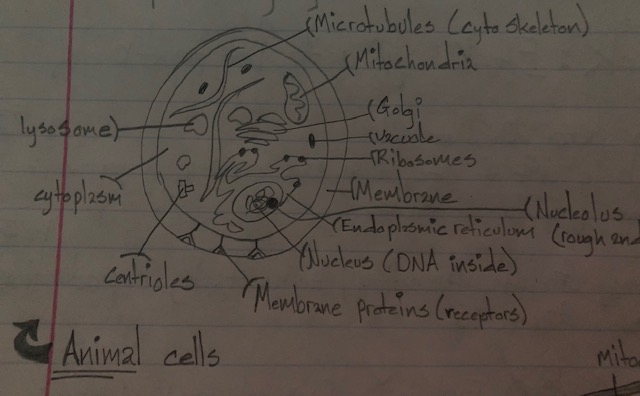 Microtubules (cyto skeleton)
Mitochondria
Golgi
lysosome
vacuole
Ribosomes
cytoplasm
Membrane
Nucleolus
Endoplasmic reticulum (rough and
Nucleus (DNA inside)
Centrioles
Membrane proteins (receptors)
Animal cells
Mito